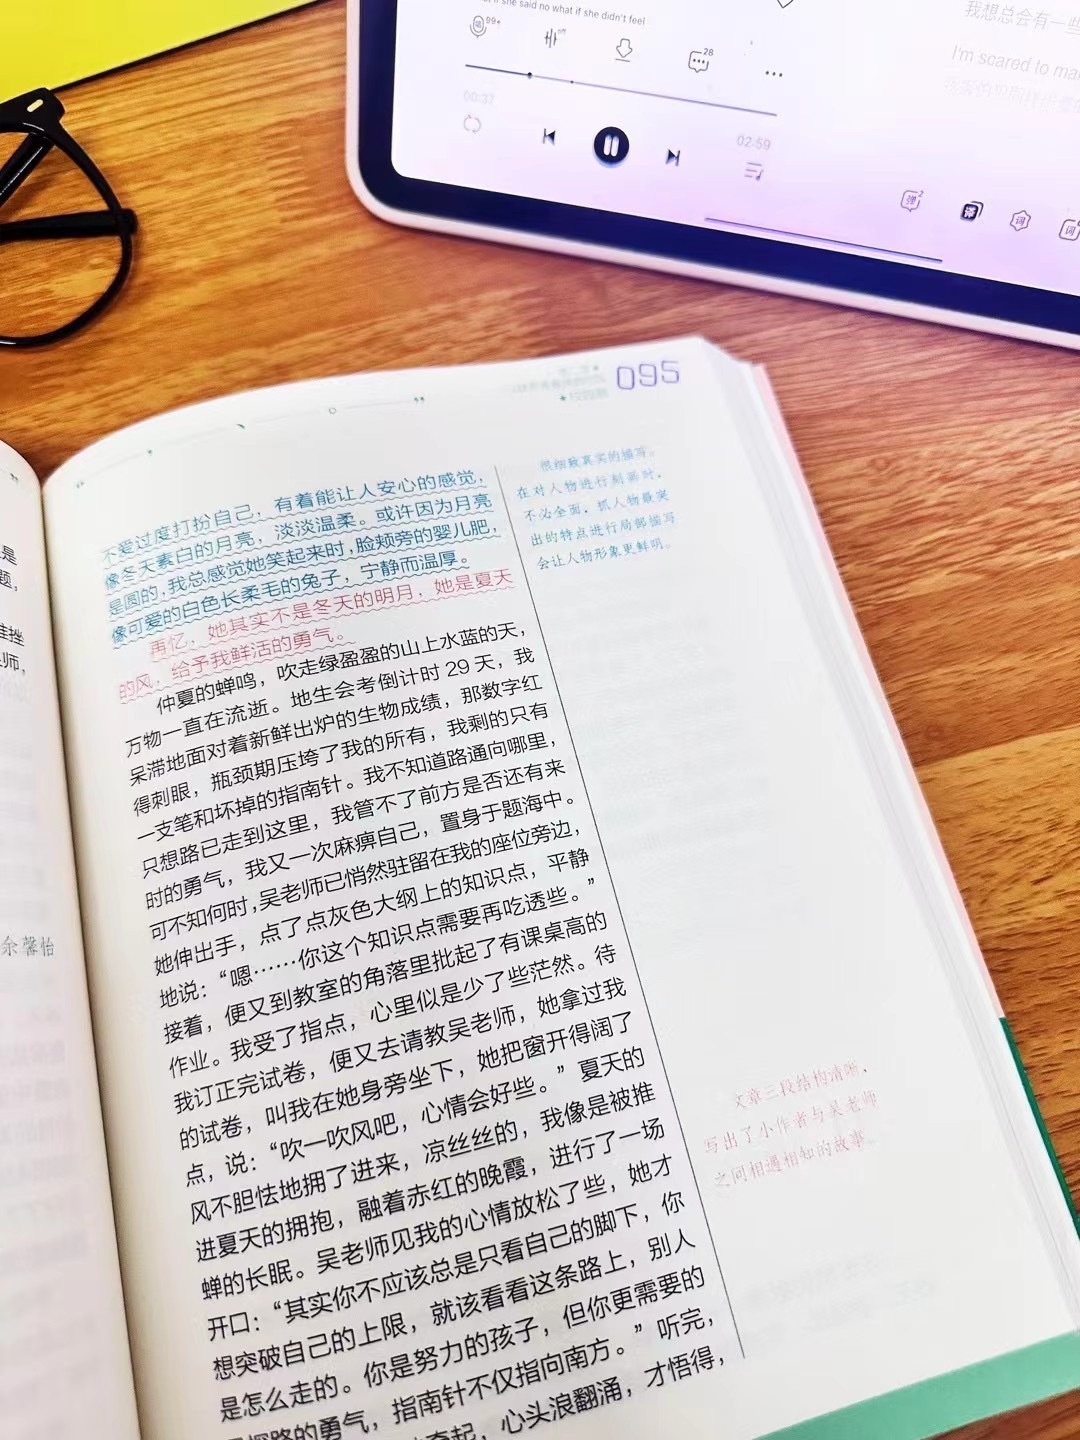 if she said no what if she didn't feel
99+
28
00:37
02:59
弹
2
译
词
词
我想总会有一些
I'm scared to ma
095
不爱过度打扮自己，有着能让人安心的感觉，
像冬天素白的月亮，淡淡温柔。或许因为月亮
是圆的，我总感觉她笑起来时，脸颊旁的婴儿肥，
像可爱的白色长柔毛的兔子，宁静而温厚。
再忆，她其实不是冬天的明月，她是夏天
的风，给予我鲜活的勇气。
仲夏的蝉鸣，吹走绿盈盈的山上水蓝的天，
万物一直在流逝。地生会考倒计时 29 天，我
呆滞地面对着新鲜出炉的生物成绩，那数字红
得刺眼，瓶颈期压垮了我的所有，我剩的只有
一支笔和坏掉的指南针。我不知道路通向哪里，
只想路已走到这里，我管不了前方是否还有来
时的勇气，我又一次麻痹自己，置身于题海中。
可不知何时，吴老师已悄然驻留在我的座位旁边，
她伸出手，点了点灰色大纲上的知识点，平静
地说：“嗯……你这个知识点需要再吃透些。”
接着，便又到教室的角落里批起了有课桌高的
作业。我受了指点，心里似是少了些茫然。待
我订正完试卷，便又去请教吴老师，她拿过我
的试卷，叫我在她身旁坐下，她把窗开得阔了
点，说：“吹一吹风吧，心情会好些。”夏天的
风不胆怯地拥了进来，凉丝丝的，我像是被推
进夏天的拥抱，融着赤红的晚霞，进行了一场
蝉的长眠。吴老师见我的心情放松了些，她才
开口：“其实你不应该总是只看自己的脚下，你
想突破自己的上限，就该看看这条路上，别人
是怎么走的。你是努力的孩子，但你更需要的
探路的勇气，指南针不仅指向南方。”听完，
起，心头浪翻涌，才悟得，
很细致真实的描写。
在对人物进行刻画时，
不必全面，抓人物最突
出的特点进行局部描写
会让人物形象更鲜明。
文章三段结构清晰，
写出了小作者与吴老师
之间相遇相知的故事。
是
题，
挫
师，
余馨怡